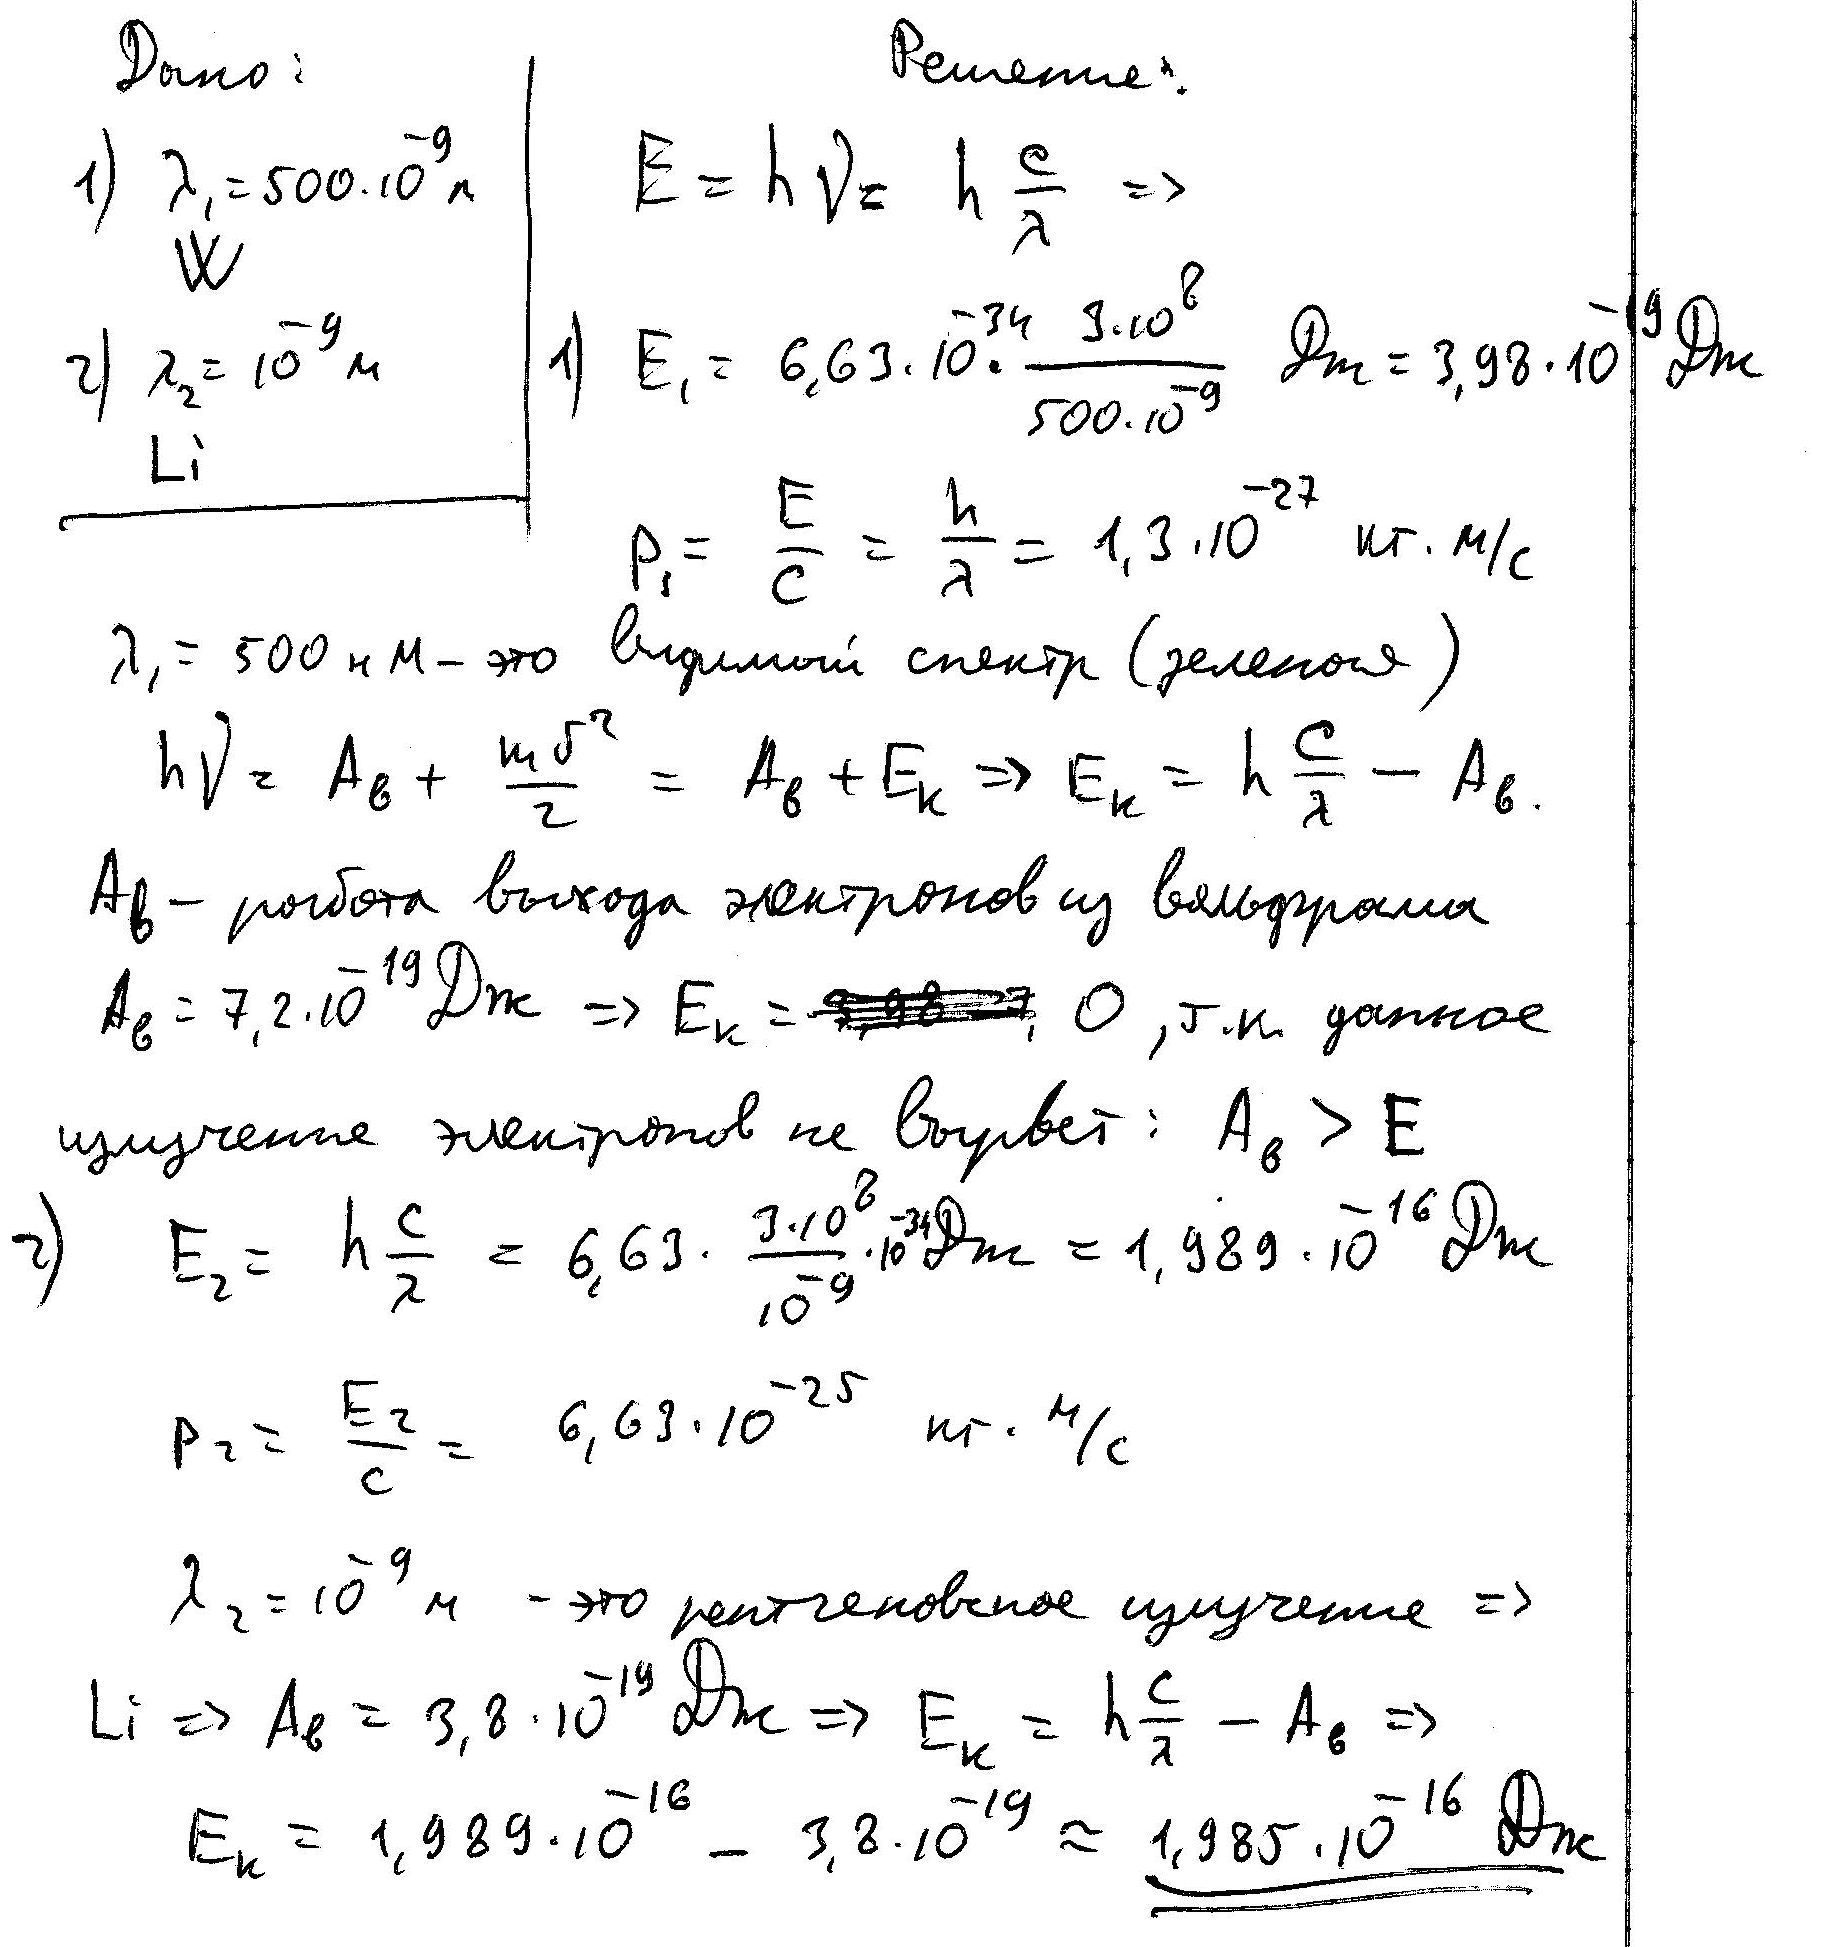 Дано:
1) λ₁ = 500·10⁻⁹ м
W
2) λ₂ = 10⁻⁹ м
Li
Решение:
E = hν = h c/λ =>
1) E₁ = 6,63·10⁻³⁴ · 3·10⁸/500·10⁻⁹ Дж = 3,98·10⁻¹⁹ Дж
p₁ = E/c = h/λ = 1,3·10⁻²⁷ кг·м/с
λ₁ = 500 нм – это видимый спектр (зеленая)
hν = Aв + mv²/2 = Aв + Eк => Eк = h c/λ – Aв.
Aв – работа выхода электронов из вольфрама
Aв = 7,2·10⁻¹⁹ Дж => Eк = 0, т.к. данное
излучение электронов не вырвет: Aв > E
2) E₂ = h c/λ = 6,63 · 3·10⁸/10⁻⁹ · 10⁻³⁴ Дж = 1,989·10⁻¹⁶ Дж
p₂ = E₂/c = 6,63·10⁻²⁵ кг·м/с
λ₂ = 10⁻⁹ м – это рентгеновское излучение =>
Li => Aв = 3,8·10⁻¹⁹ Дж => Eк = h c/λ – Aв =>
Eк = 1,989·10⁻¹⁶ – 3,8·10⁻¹⁹ ≈ 1,985·10⁻¹⁶ Дж